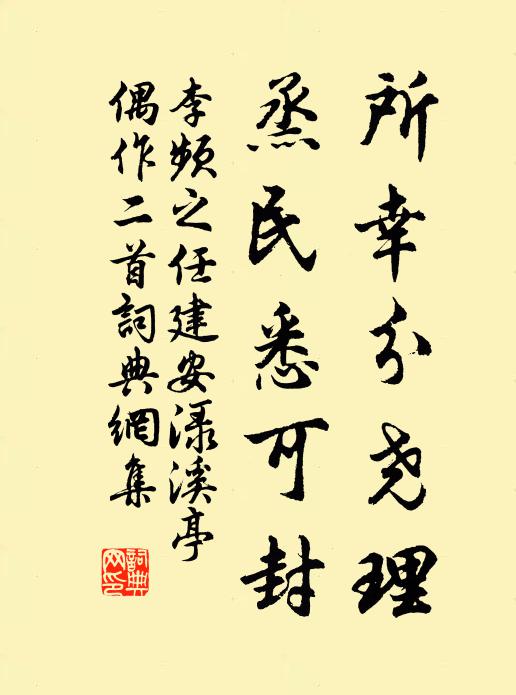 所幸分尧理
蒸民悉可封
李频之任建安渌溪亭
偶作二首詞典網集
詞典網印